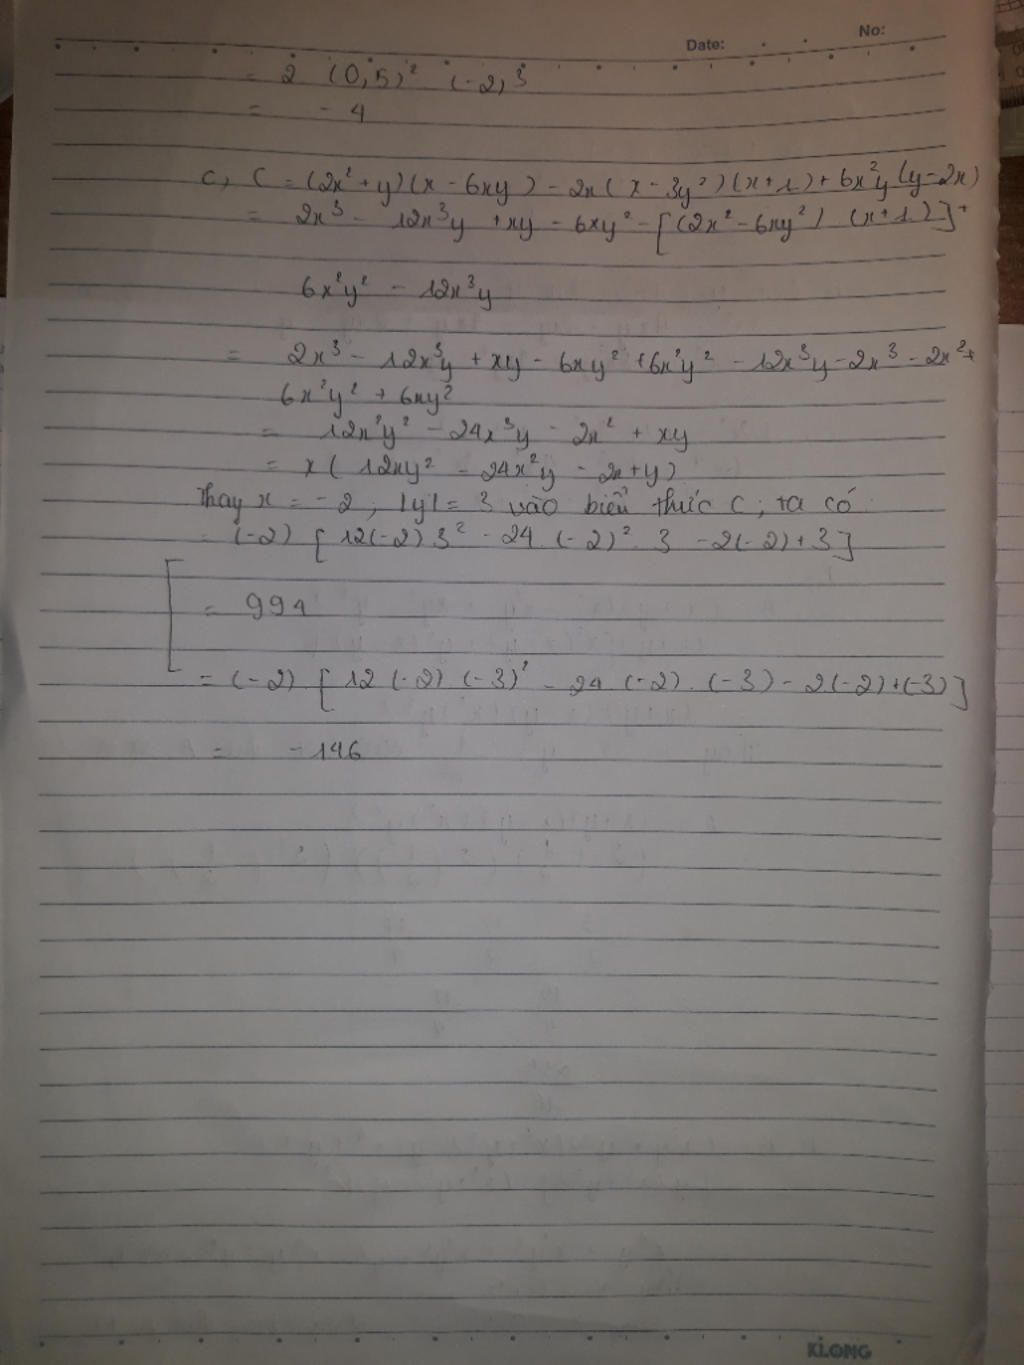 No:
Date:
= 2 (0,5)² (-2)³
= - 4
c, C = (2x² + y)(x - 6xy) - 2x(x - 3y²)(x+1) + 6x²y(y-2x)
= 2x³ - 12x³y + xy - 6xy² - [(2x² - 6xy²) (x+1)] +
6x²y² - 12x³y
= 2x³ - 12x³y + xy - 6xy² + 6x²y² - 12x³y - 2x³ - 2x² +
6x²y² + 6xy²
= 12x²y² - 24x³y - 2x² + xy
= x( 12xy² - 24x²y - 2x + y)
Thay x = -2 ; |y| = 3 vào biểu thức C ; ta có
= (-2) [12(-2) 3² - 24 (-2)² . 3 - 2(-2) + 3]
= 994
= (-2) [12 (-2) (-3)² - 24 (-2) . (-3) - 2(-2) + (-3)]
= -146
KLONG